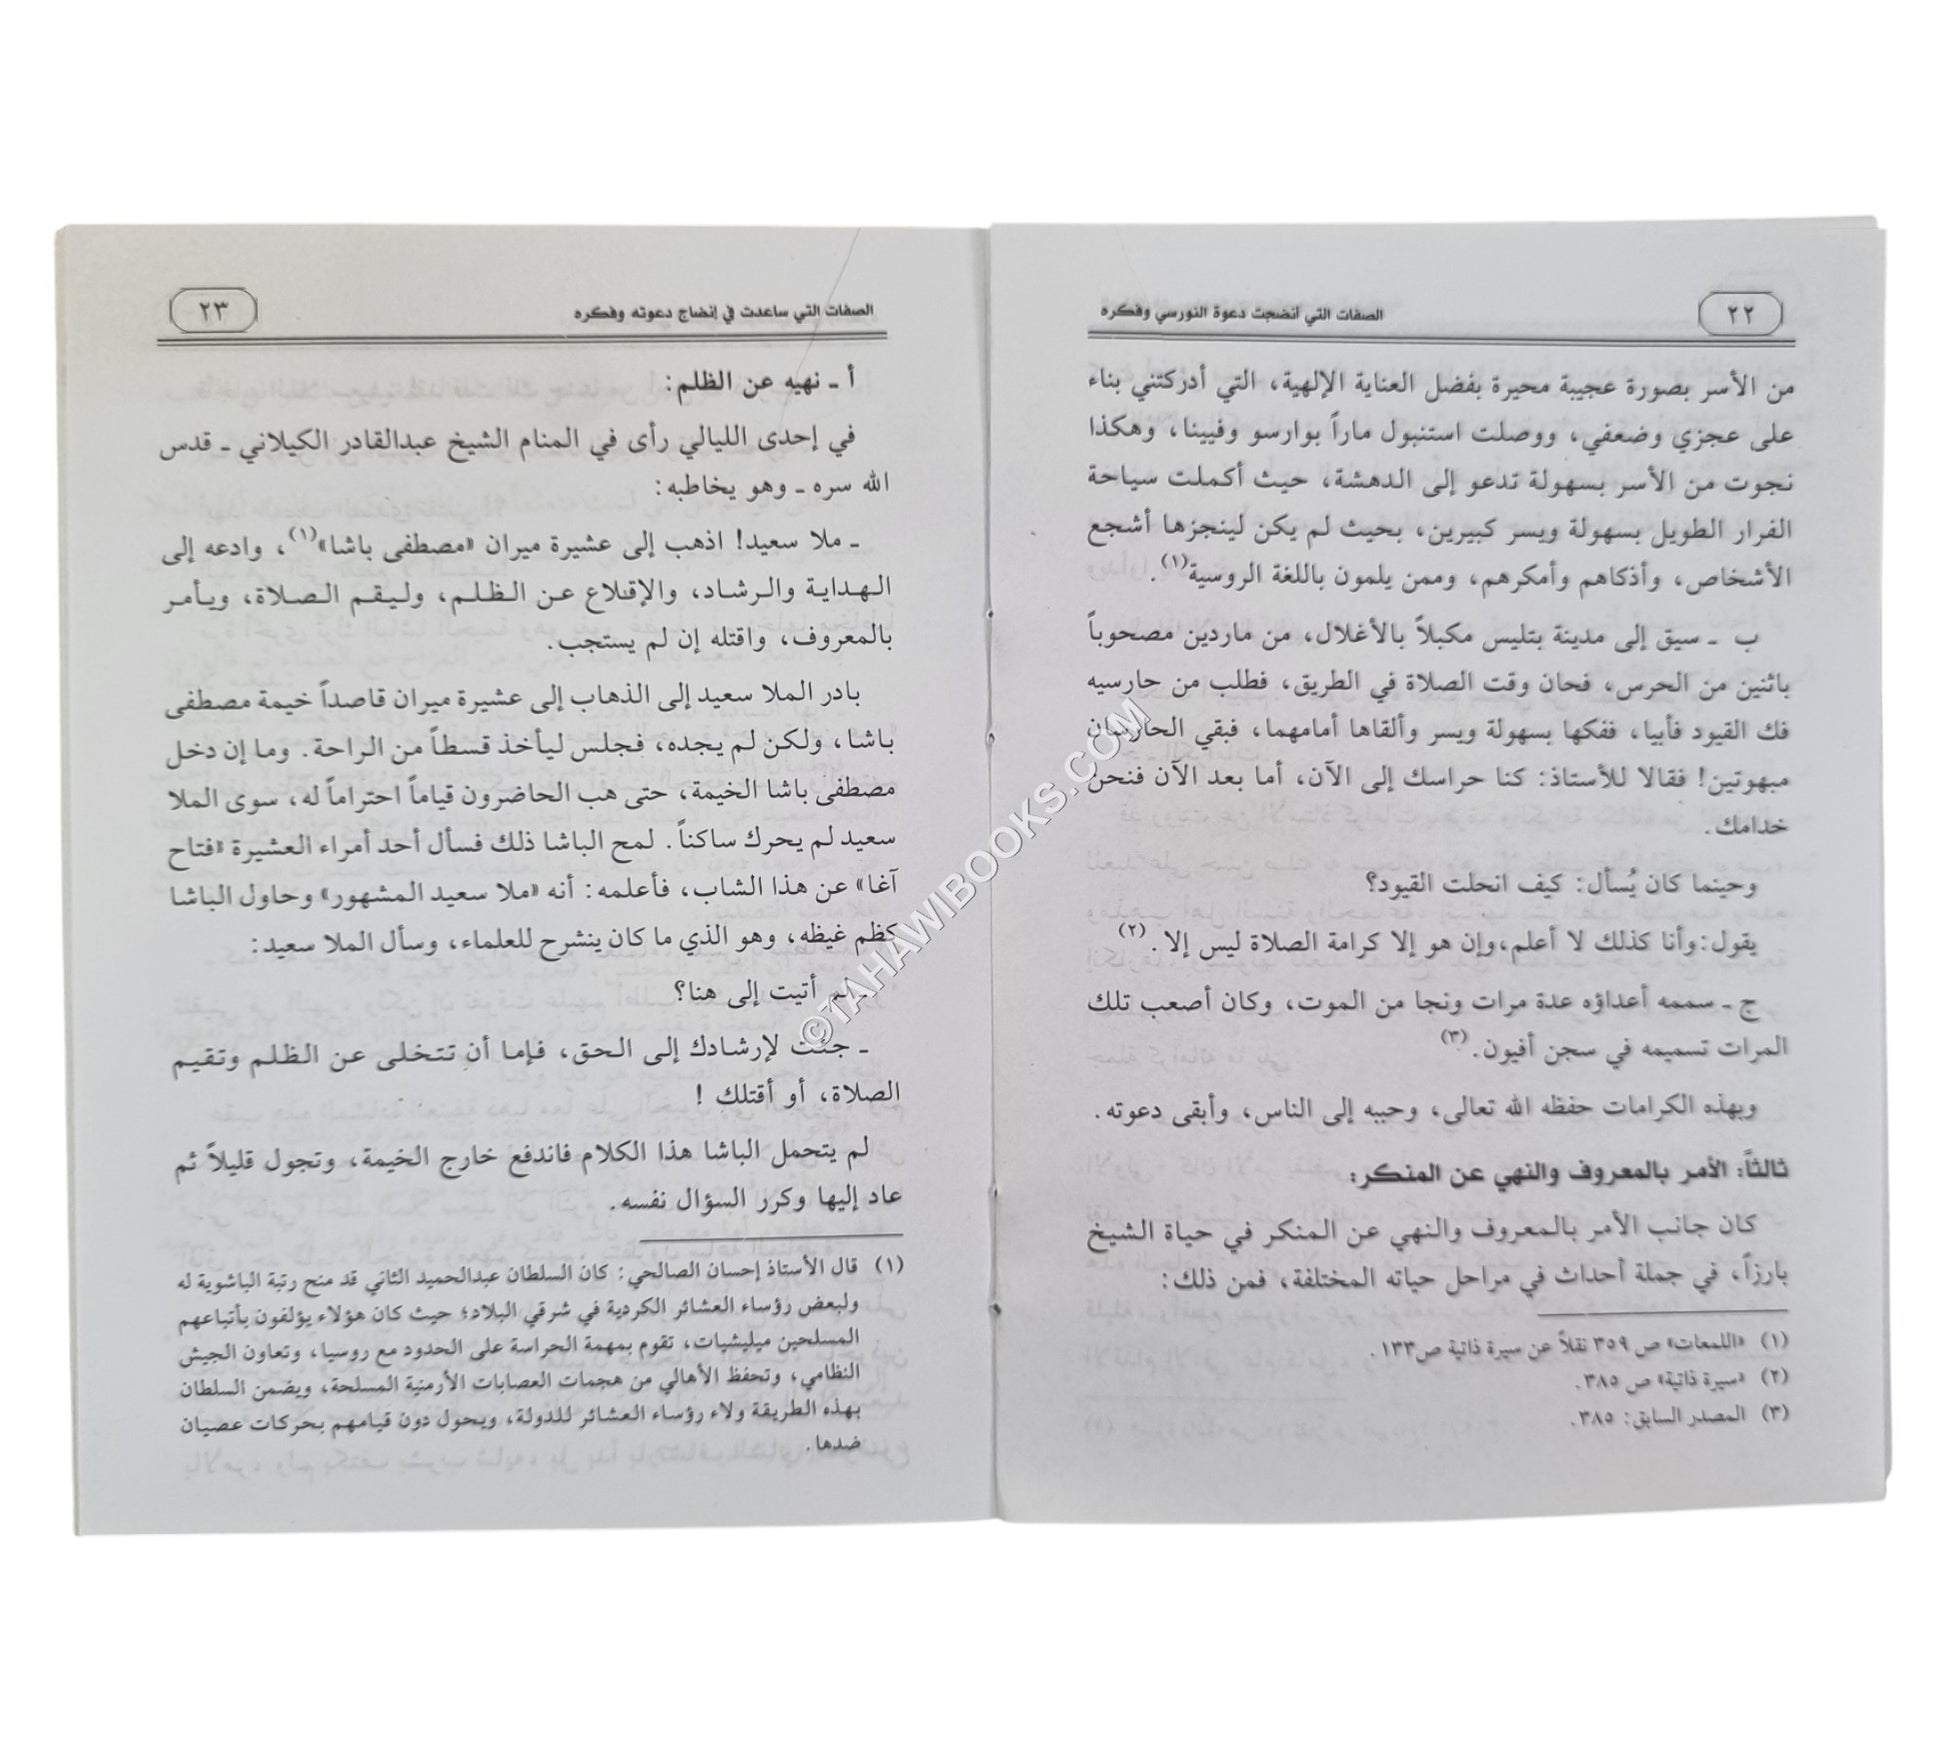 ٢٢
الصفات التي أنضجت دعوة النورسي وفكره
من الأسر بصورة عجيبة محيرة بفضل العناية الإلهية، التي أدركتني بناء
على عجزي وضعفي، ووصلت استنبول ماراً بوارسو وفيينا، وهكذا
نجوت من الأسر بسهولة تدعو إلى الدهشة، حيث أكملت سياحة
الفرار الطويل بسهولة ويسر كبيرين، بحيث لم يكن لينجزها أشجع
الأشخاص، وأذكاهم وأمكرهم، وممن يلمون باللغة الروسية(١).
ب ـ سيق إلى مدينة بتليس مكبلاً بالأغلال، من ماردين مصحوباً
باثنين من الحرس، فحان وقت الصلاة في الطريق، فطلب من حارسيه
فك القيود فأبيا، ففكها بسهولة ويسر وألقاها أمامهما، فبقي الحارسان
مبهوتين! فقالا للأستاذ: كنا حراسك إلى الآن، أما بعد الآن فنحن
خدامك.
وحينما كان يُسأل: كيف انحلت القيود؟
يقول: وأنا كذلك لا أعلم، وإن هو إلا كرامة الصلاة ليس إلا.(٢)
ج ـ سممه أعداؤه عدة مرات ونجا من الموت، وكان أصعب تلك
المرات تسميمه في سجن أفيون.(٣)
وبهذه الكرامات حفظه الله تعالى، وحببه إلى الناس، وأبقى دعوته.
ثالثاً: الأمر بالمعروف والنهي عن المنكر:
كان جانب الأمر بالمعروف والنهي عن المنكر في حياة الشيخ
بارزاً، في جملة أحداث في مراحل حياته المختلفة، فمن ذلك:
(١) «اللمعات» ص ٣٥٩ نقلاً عن سيرة ذاتية ص١٣٣.
(٢) «سيرة ذاتية» ص ٣٨٥.
(٣) المصدر السابق: ٣٨٥.
٢٣
الصفات التي ساعدت في إنضاج دعوته وفكره
أ ـ نهيه عن الظلم:
في إحدى الليالي رأى في المنام الشيخ عبدالقادر الكيلاني ـ قدس
الله سره ـ وهو يخاطبه:
ـ ملا سعيد! اذهب إلى عشيرة ميران «مصطفى باشا»(١)، وادعه إلى
الهداية والرشاد، والإقلاع عن الظلم، وليقم الصلاة، ويأمر
بالمعروف، واقتله إن لم يستجب.
بادر الملا سعيد إلى الذهاب إلى عشيرة ميران قاصداً خيمة مصطفى
باشا، ولكن لم يجده، فجلس ليأخذ قسطاً من الراحة. وما إن دخل
مصطفى باشا الخيمة، حتى هب الحاضرون قياماً احتراماً له، سوى الملا
سعيد لم يحرك ساكناً. لمح الباشا ذلك فسأل أحد أمراء العشيرة «فتاح
آغا» عن هذا الشاب، فأعلمه: أنه «ملا سعيد المشهور» وحاول الباشا
كظم غيظه، وهو الذي ما كان ينشرح للعلماء، وسأل الملا سعيد:
أتيت إلى هنا؟
ـ جئت لإرشادك إلى الحق، فإما أن تتخلى عن الظلم وتقيم
الصلاة، أو أقتلك !
لم يتحمل الباشا هذا الكلام فاندفع خارج الخيمة، وتجول قليلاً ثم
عاد إليها وكرر السؤال نفسه.
(١) قال الأستاذ إحسان الصالحي: كان السلطان عبدالحميد الثاني قد منح رتبة الباشوية له
ولبعض رؤساء العشائر الكردية في شرقي البلاد؛ حيث كان هؤلاء يؤلفون بأتباعهم
المسلحين ميليشيات، تقوم بمهمة الحراسة على الحدود مع روسيا، وتعاون الجيش
النظامي، وتحفظ الأهالي من هجمات العصابات الأرمنية المسلحة، ويضمن السلطان
بهذه الطريقة ولاء رؤساء العشائر للدولة، ويحول دون قيامهم بحركات عصيان
ضدها.
©TAHAWIBOOKS.COM